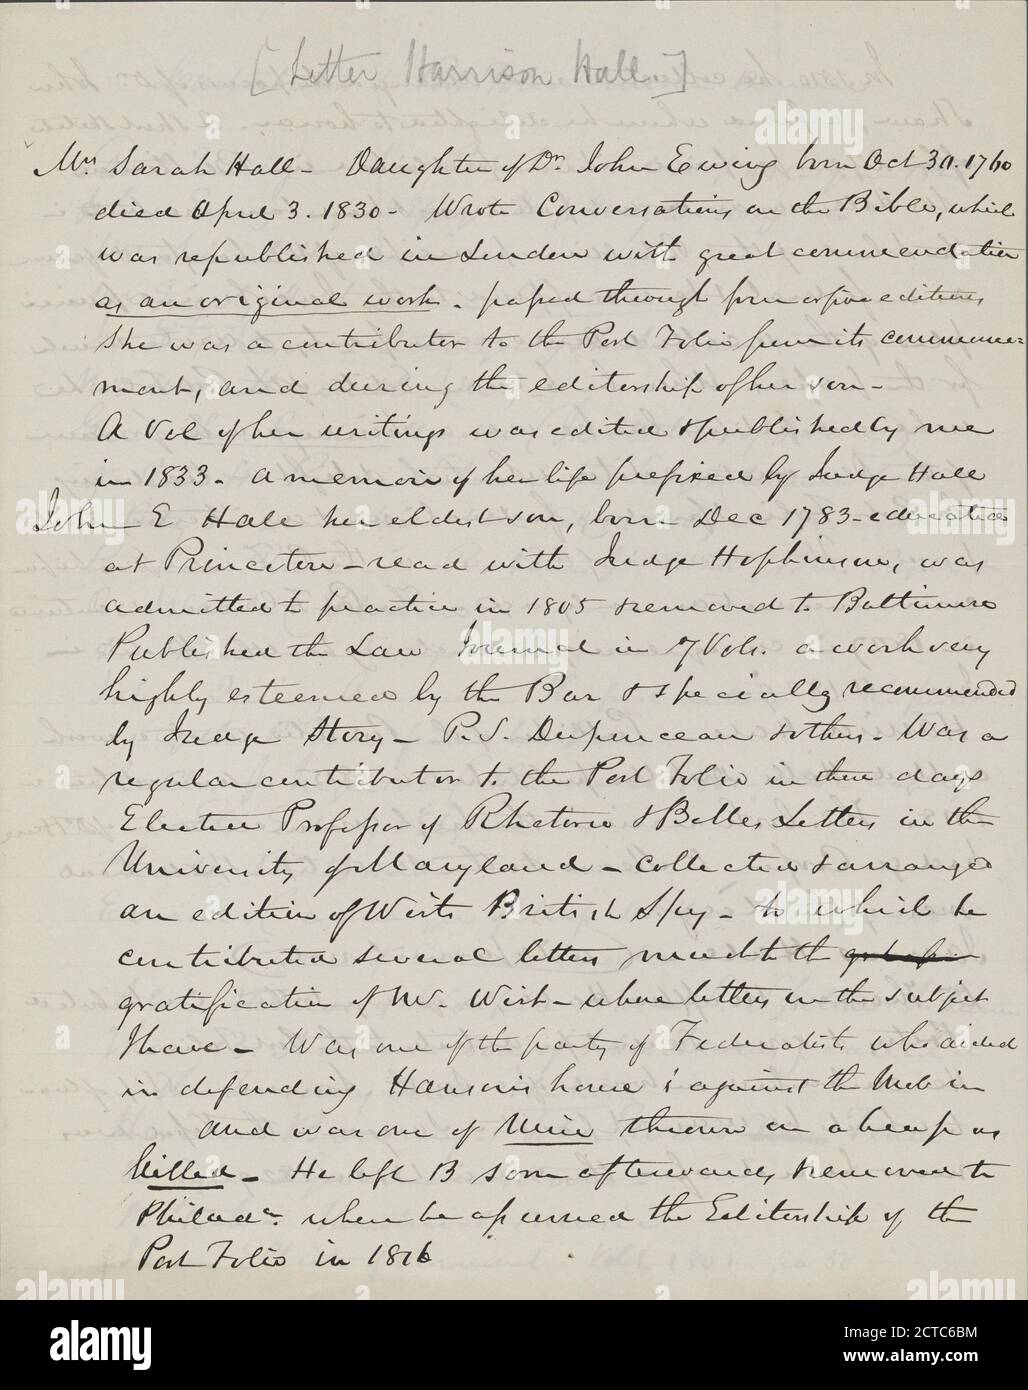 [Letter Harrison Hall.]
Mrs. Sarah Hall - Daughter of Dr. John Ewing born Oct 30. 1760
died April 3. 1830 - Wrote Conversations on the Bible, which
was republished in London with great commendation
as an original work. passed through four or five editions,
She was a contributor to the Port Folio from its commence=
ment, and during the editorship of her son -
A Vol of her writings was edited & published by me
in 1833 - A memoir of her life prefixed by Judge Hall
John E Hall her eldest son, born Dec 1783 - educated
at Princeton - read with Judge Hopkinson, was
admitted to practice in 1805 & removed to Baltimore
Published the Law Journal in 7 Vols. a work very
highly esteemed by the Bar & specially recommended
by Judge Story - P. S. Duponceau & others - Was a
regular contributor to the Port Folio in these days
Elected Professor of Rhetoric & Belles Letters in the
University of Maryland - collected & arranged
an edition of Wirts British Spy - to which he
contributed several letters much to the
gratification of Mr. Wirt - whose letters on the subject
I have - Was one of the party of Federalists who aided
in defending Hanson's house against the Mob in
and was one of Nine thrown in a heap as
killed - He left B soon afterwards & removed to
Philada. when he assumed the Editorship of the
Port Folio in 1816
alamy
alamy
Image ID: 2CTC6BM
www.alamy.com